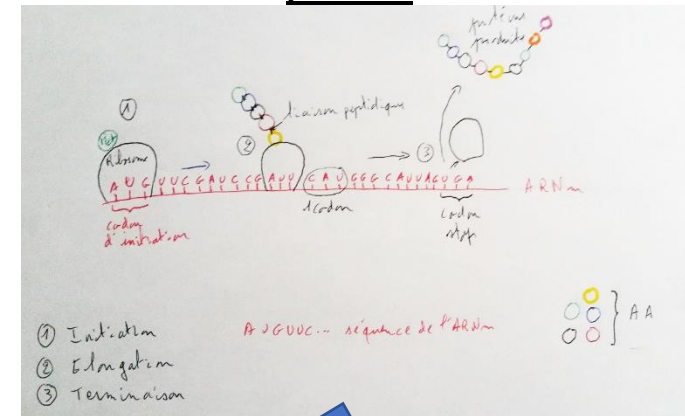 protéine
produite
①
Met
Ribosome
②
liaison peptidique
③
A U G U U C G A U C C G A U U C A U G G G C A U U A G U G A
ARNm
codon
d'initiation
1 codon
codon
stop
① Initiation
② Elongation
③ Terminaison
AUGUUC... séquence de l'ARNm
AA